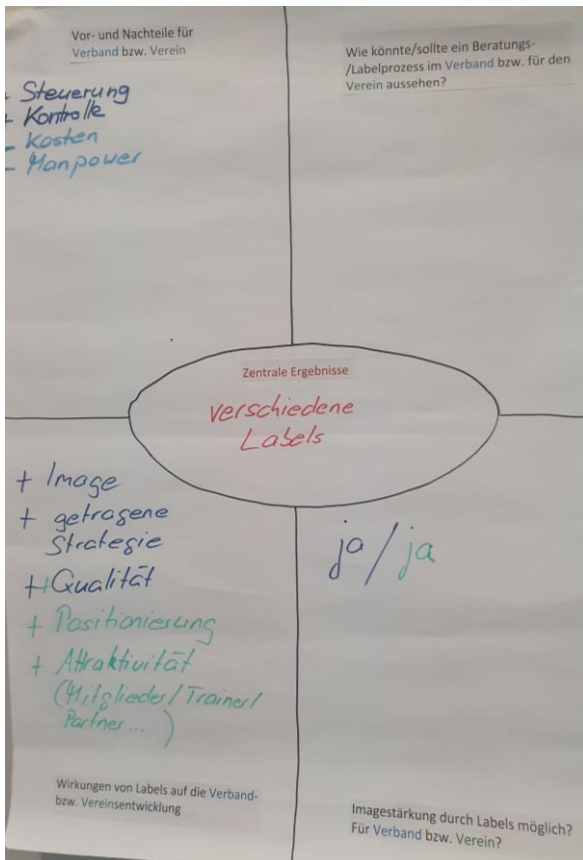 Vor- und Nachteile für
Verband bzw. Verein
+ Steuerung
+ Kontrolle
- Kosten
- Manpower
Wie könnte/sollte ein Beratungs-
/Labelprozess im Verband bzw. für den
Verein aussehen?
Zentrale Ergebnisse
verschiedene
Labels
+ Image
+ getragene
Strategie
++ Qualität
+ Positionierung
+ Attraktivität
(Mitglieder/Trainer/
Partner...)
Wirkungen von Labels auf die Verband-
bzw. Vereinsentwicklung
ja/ja
Imagestärkung durch Labels möglich?
Für Verband bzw. Verein?